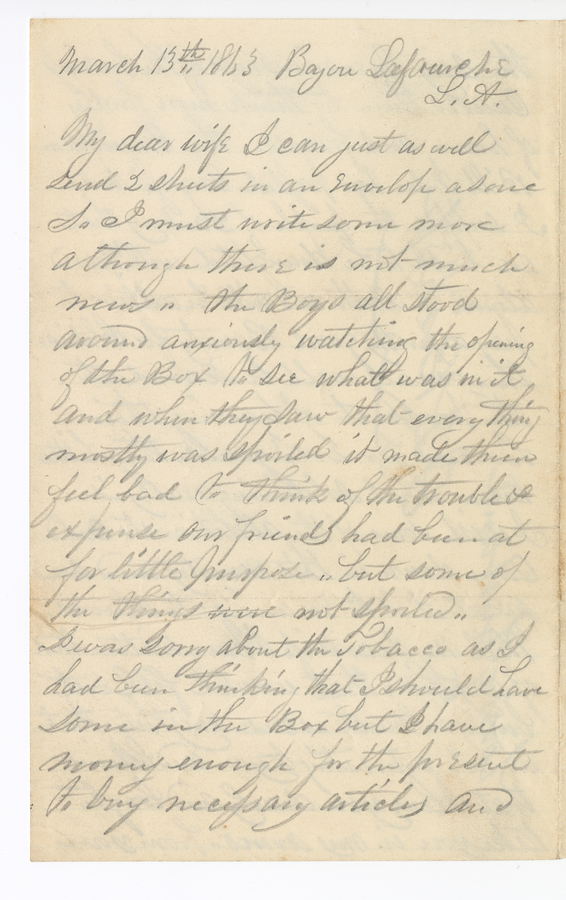 March 13th 1863 Bayou Lafourche
L. A.
My dear wife I can just as well
send 2 sheets in an Envelop as one
So I must write some more
although there is not much
news " the Boys all stood
around anxiously watching the opening
of the Box to see what was in it
and when they saw that every thing
mostly was spoiled it made them
feel bad to think of the trouble &
expense our friends had been at
for little purpose " but some of
the things were not spoiled "
I was sorry about the Tobacco as I
had been thinking that I should have
some in the Box but I have
money enough for the present
to buy necessary articles and